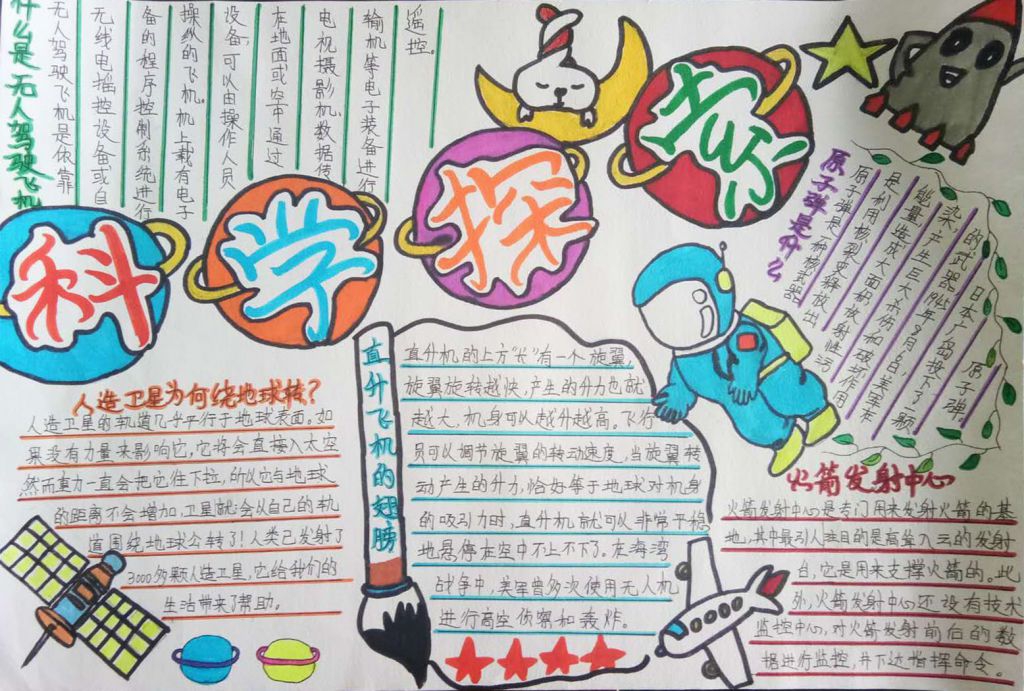 什么是无人驾驶飞机
无人驾驶飞机是依靠
无线电摇控设备或自
备的程序控制系统进行
操纵的飞机。机上载有电子
设备,可以由操作人员
在地面或空中通过
电视摄影机、数据传
输机等电子装备进行
遥控。
科学探索
原子弹是什么
原子弹是一种核武器
是利用核裂变释放出
能量,造成大面积放射性污
染,产生巨大杀伤和破坏作用
的武器。1945年8月6日美军在
日本广岛投下了一颗
原子弹。
人造卫星为何绕地球转?
人造卫星的轨道几乎平行于地球表面。如
果没有力量来影响它,它将会直接入太空
然而重力一直会把它往下拉,所以它与地球
的距离不会增加,卫星就会以自己的轨
道围绕地球公转了!人类已发射了
3000多颗人造卫星,它给我们的
生活带来了帮助。
直升飞机的翅膀
直升机的上方“长”有一个旋翼,
旋翼旋转越快,产生的升力也就
越大,机身可以越升越高。飞行
员可以调节旋翼的转动速度,当旋翼转
动产生的升力,恰好等于地球对机身
的吸引力时,直升机就可以非常平稳
地悬停在空中不上不下了。在海湾
战争中,美军曾多次使用无人机
进行高空侦察和轰炸。
火箭发射中心
火箭发射中心是专门用来发射火箭的基
地,其中最引人注目的是高耸入云的发射
台,它是用来支撑火箭的。此
外,火箭发射中心还设有技术
监控中心,对火箭发射前后的数
据进行监控,并下达指挥命令。